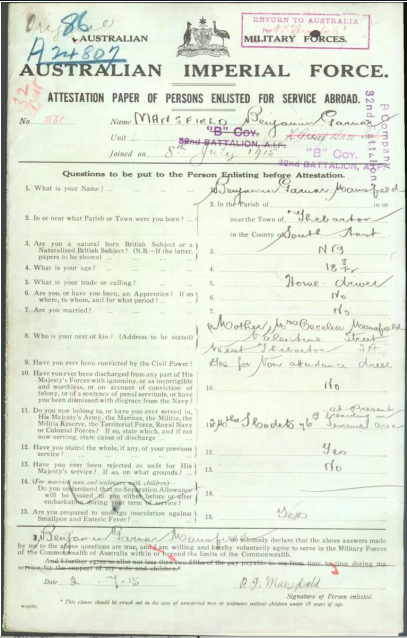 86
A24807
RETURN TO AUSTRALIA
AUSTRALIAN MILITARY FORCES.
AUSTRALIAN IMPERIAL FORCE.
ATTESTATION PAPER OF PERSONS ENLISTED FOR SERVICE ABROAD.
No. Name MANSFIELD Benjamin Garnar
Unit "B" COY.
32nd BATTALION, A.I.F.
Joined on 8th July 1915
"B" COY.
32nd BATTALION, A.I.F.
B Company
32nd Battalion
Questions to be put to the Person Enlisting before Attestation.
1. What is your Name? 1. Benjamin Garnar Mansfield
2. In or near what Parish or Town were you born? 2. In the Parish of in or
near the Town of Thebarton
in the County of South Aust
3. Are you a natural born British Subject or a
Naturalized British Subject? (N.B.—If the latter,
papers to be shown) 3. N B
4. What is your age? 4. 18
5. What is your trade or calling? 5. Horse driver
6. Are you, or have you been, an Apprentice? If so
where, to whom, and for what period? 6. No
7. Are you married? 7. No
8. Who is your next of kin? (Address to be stated) 8. Mother, Mrs Cecelia Mansfield
Valentine Street
West Thebarton SA
9. Have you ever been convicted by the Civil Power? for Non attendance drill
10. Have you ever been discharged from any part of His
Majesty's Forces with ignominy, or as incorrigible
and worthless, or on account of conviction of
felony, or of a sentence of penal servitude, or have
you been dismissed with disgrace from the Navy? 10. No
11. Do you now belong to, or have you ever served in,
His Majesty's Army, the Marines, the Militia, the
Militia Reserve, the Territorial Force, Royal Navy
or Colonial Forces? If so, state which, and if not
now serving, state cause of discharge 12 Mths Cadets 76 at Present
area
12. Have you stated the whole, if any, of your previous
service? 12. Yes
13. Have you ever been rejected as unfit for His
Majesty's service? If so, on what grounds? 13. No
14. (For married men and widowers with children)
Do you understand that no Separation Allowance
will be issued to you either before or after
embarkation during your term of service? 14.
15. Are you prepared to undergo inoculation against
Smallpox and Enteric Fever? 15. Yes
I, Benjamin Garnar Mansfield do solemnly declare that the above answers made
by me to the above questions are true, and I am willing and hereby voluntarily agree to serve in the Military Forces
of the Commonwealth of Australia within or beyond the limits of the Commonwealth.
And I further agree to allot not less than fifths of the pay payable to me from time to time during my
service for the support of my wife and children.
Date 2-7-15 B.G. Mansfield
Signature of Person enlisted.
* This clause should be struck out in the case of unmarried men or widowers without children under 18 years of age.